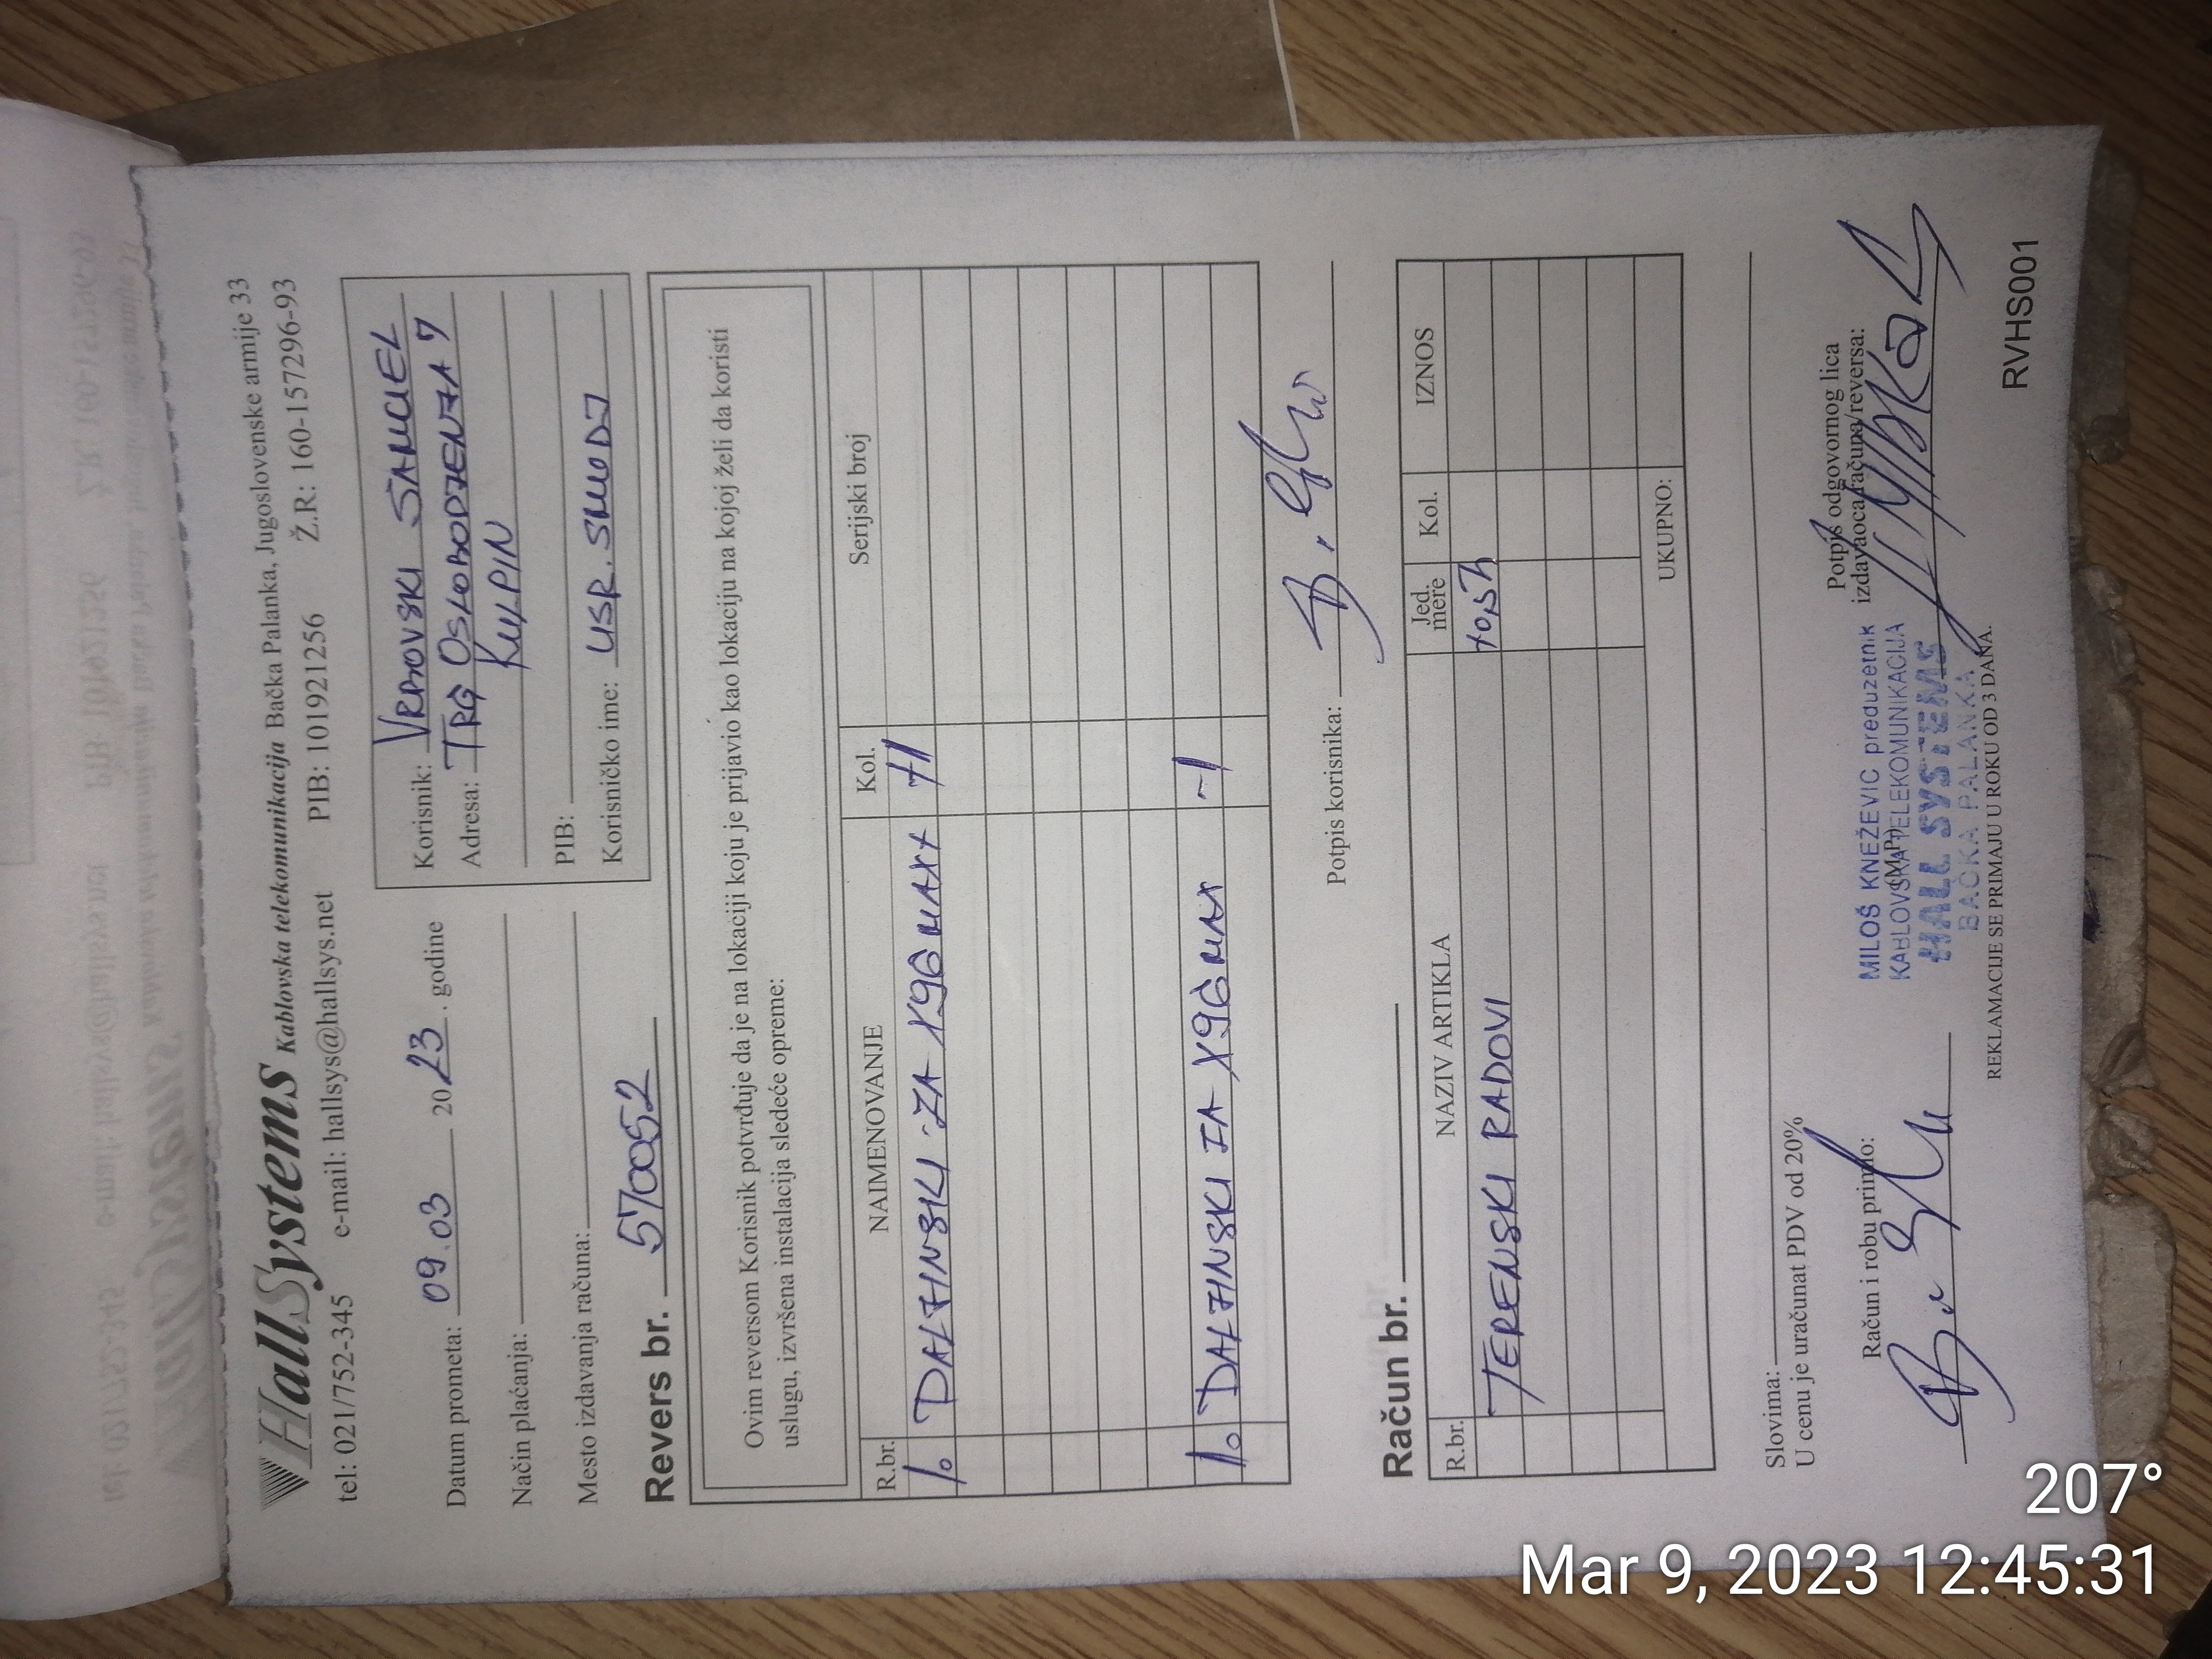 HallSystems Kablovska telekomunikacija Bačka Palanka, Jugoslovenske armije 33
tel: 021/752-345 e-mail: hallsys@hallsys.net PIB: 101921256 Ž.R: 160-157296-93
Datum prometa: 09.03 2023. godine
Način plaćanja:
Mesto izdavanja računa:
Korisnik: VRBOVSKI SAMUEL
Adresa: TRG OSLOBODJENJA 7
KULPIN
PIB:
Korisničko ime: USR.
Revers br. 570052
Ovim reversom Korisnik potvrđuje da je na lokaciji koju je prijavio kao lokaciju na kojoj želi da koristi
uslugu, izvršena instalacija sledeće opreme:
R.br. NAIMENOVANJE Kol. Serijski broj
1. DALJINSKI ZA X96 MAX+ +1
1. DALJINSKI ZA X96 MAX -1
Potpis korisnika:
Račun br.
R.br. NAZIV ARTIKLA Jed. mere Kol. IZNOS
TERENSKI RADOVI
UKUPNO:
Slovima:
U cenu je uračunat PDV od 20%
Račun i robu primio:
(M.P.)
Potpis odgovornog lica
izdavaoca računa/reversa:
MILOŠ KNEŽEVIC preduzetnik
KABLOVSKA TELEKOMUNIKACIJA
HALL SYSTEMS
BAČKA PALANKA
REKLAMACIJE SE PRIMAJU U ROKU OD 3 DANA.
RVHS001
207°
Mar 9, 2023 12:45:31